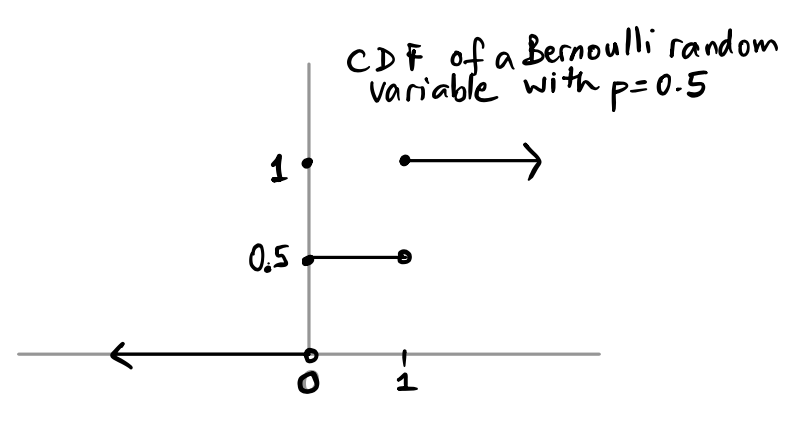 CDF of a Bernoulli random
variable with p=0.5
1
0.5
0 1